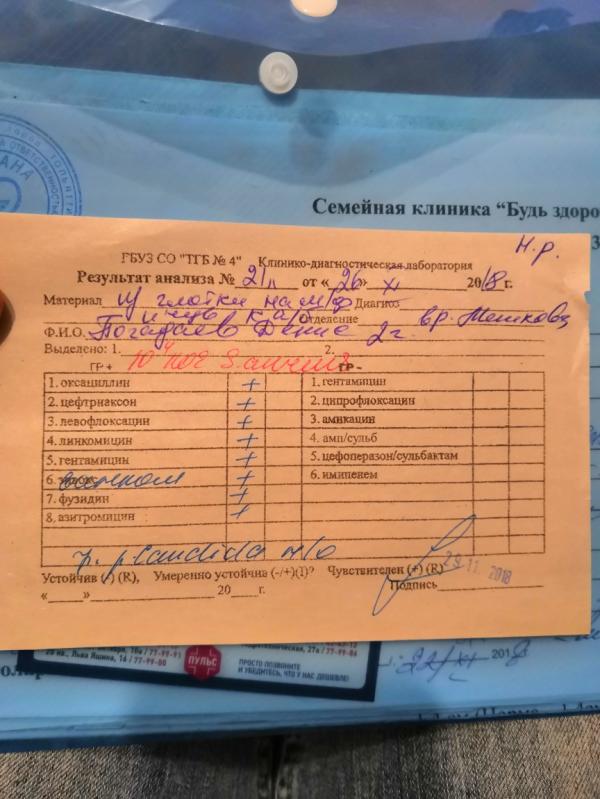 ТОЛЬЯТТИ
ОТВЕТСТВЕННОСТЬЮ
Семейная клиника “Будь здоро
Н.р.
ГБУЗ СО "ТГБ № 4" Клинико-диагностическая лаборатория
Результат анализа № 21л от « 26» XI 2018г.
Материал из глотки на м/ф Диагноз
и чув к а/б Отделение вр. Мешкова
Ф.И.О. Погадаев Денис 2г.
Выделено: 1. 2.
ГР + 10 КОЕ S. ГР -
1. оксациллин + 1. гентамицин
2. цефтриаксон + 2. ципрофлоксацин
3. левофлоксацин + 3. амикацин
4. линкомицин + 4. амп/сульб
5. гентамицин + 5. цефоперазон/сульбактам
6. ванком + 6. имипенем
7. фузидин +
8. азитромицин +
р. Candida н/о
Устойчив (-) (R), Умеренно устойчив (-/+)(I)? Чувствителен (+) (R)
29.11.2018
« » 20 г. Подпись
10а / 77-99-91
20 кв., Льва Яшина, 16 / 77-99-00
27а / 77-99-06
ПУЛЬС
ПРОСТО ПОЗВОНИТЕ
И УБЕДИТЕСЬ, ЧТО У НАС ДЕШЕВЛЕ!
22/XI 2018